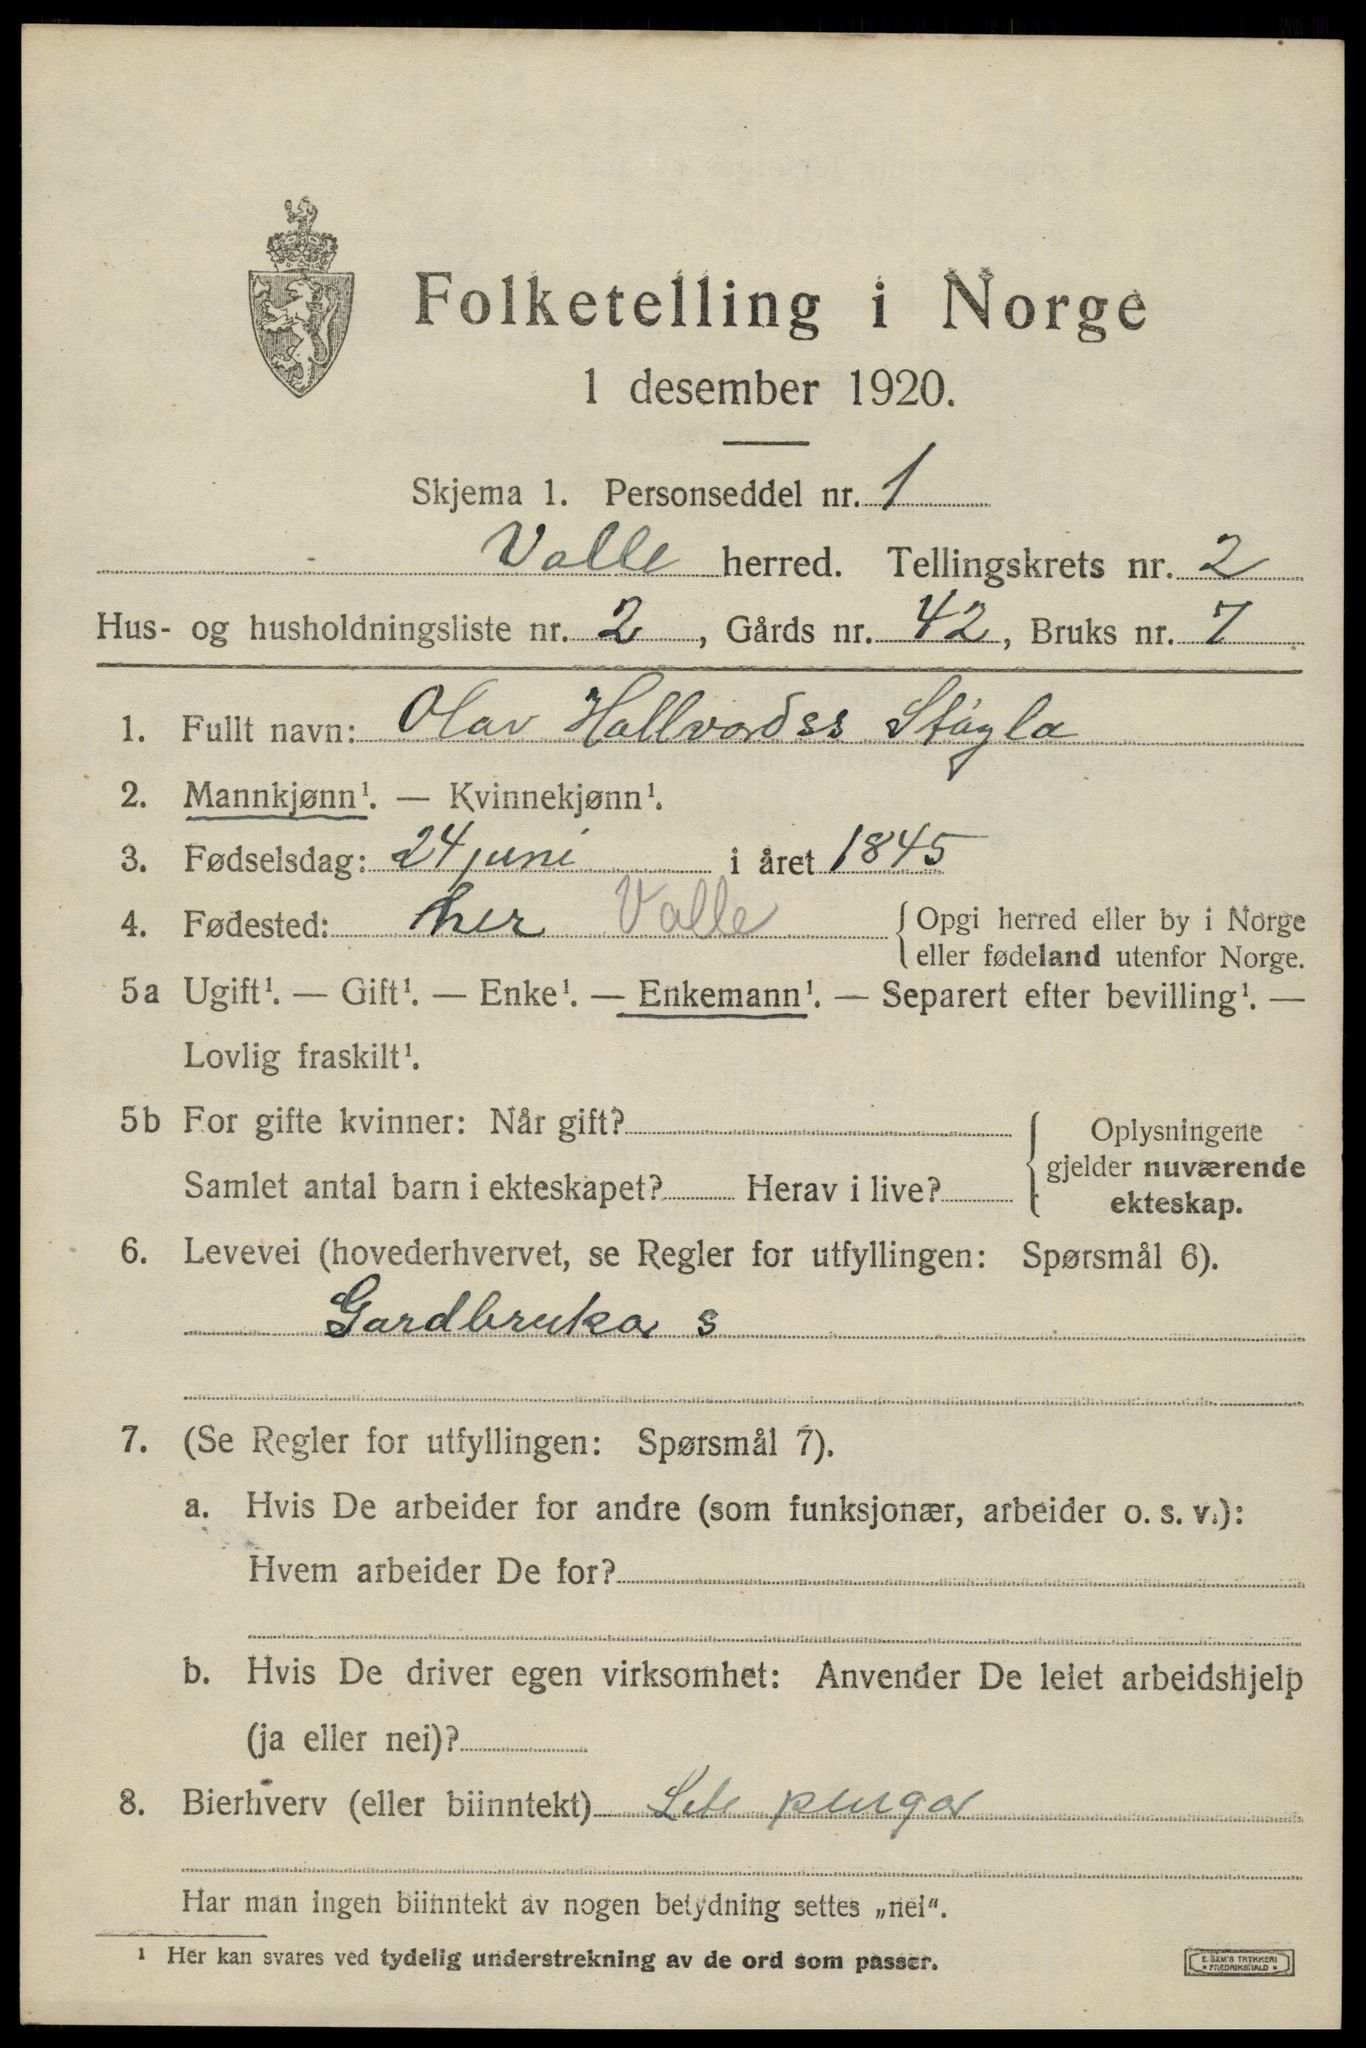 Folketelling i Norge
1 desember 1920.
Skjema 1. Personseddel nr. 1
Valle herred. Tellingskrets nr. 2
Hus- og husholdningsliste nr. 2, Gårds nr. 42, Bruks nr. 7
1. Fullt navn: Olav Hallvordss Stágla
2. Mannkjønn¹. — Kvinnekjønn¹.
3. Fødselsdag: 24 juni i året 1845
4. Fødested: her Valle { Opgi herred eller by i Norge
eller fødeland utenfor Norge.
5a Ugift¹. — Gift¹. — Enke¹. — Enkemann¹. — Separert efter bevilling¹. —
Lovlig fraskilt¹.
5b For gifte kvinner: Når gift? { Oplysningene
gjelder nuværende
Samlet antal barn i ekteskapet? Herav i live?
ekteskap.
6. Levevei (hovederhvervet, se Regler for utfyllingen: Spørsmål 6).
Gardbrukar s
7. (Se Regler for utfyllingen: Spørsmål 7).
a. Hvis De arbeider for andre (som funksjonær, arbeider o. s. v.):
Hvem arbeider De for?
b. Hvis De driver egen virksomhet: Anvender De leiet arbeidshjelp
(ja eller nei)?
8. Bierhverv (eller biinntekt) pengar
Har man ingen biinntekt av nogen betydning settes „nei".
¹ Her kan svares ved tydelig understrekning av de ord som passer.
E. SEM'S TRYKKERI
FREDRIKSHALD